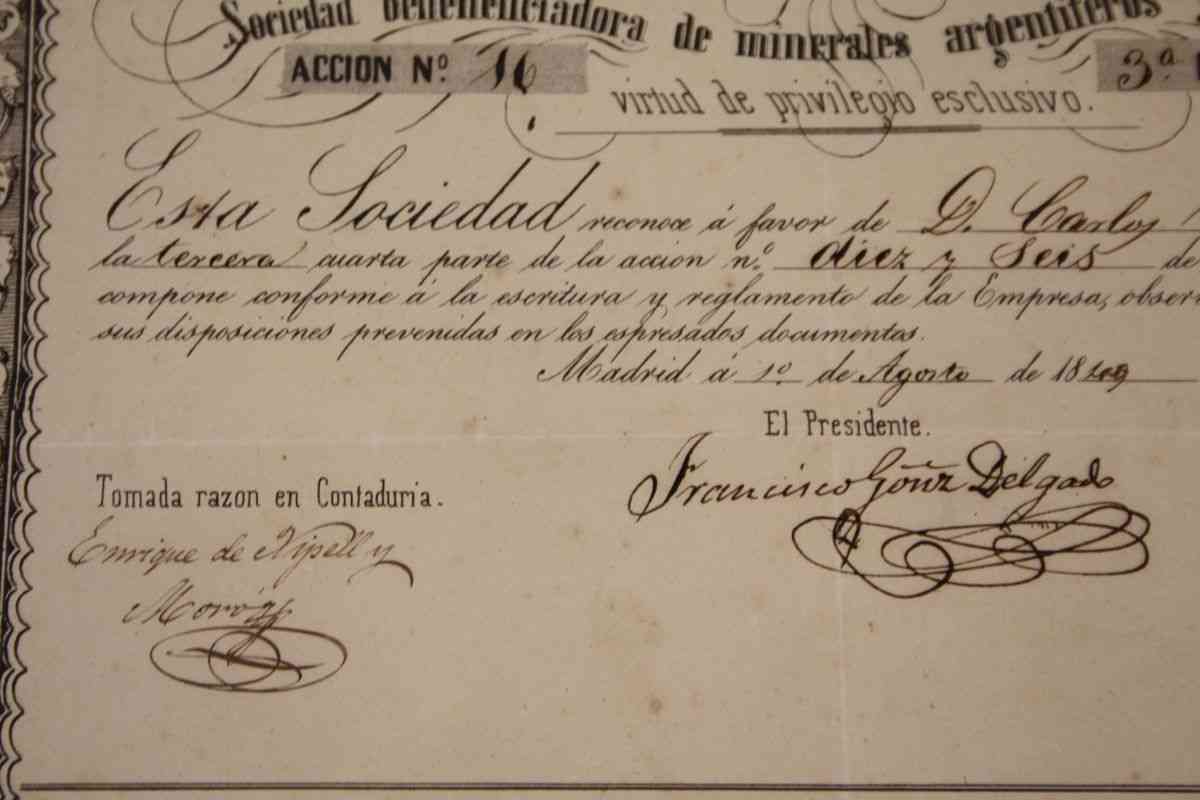 Sociedad beneficiadora de minerales argentíferos
ACCION Nº 16 3ª
virtud de privilegio esclusivo.
Esta Sociedad reconoce á favor de D. Carlos
la tercera cuarta parte de la accion nº. diez y seis de
compone conforme á la escritura y reglamento de la Empresa, obser
sus disposiciones prevenidas en los espresados documentos.
Madrid á 1º de Agosto de 1849
El Presidente.
Francisco Gönz Delgado
Tomada razon en Contaduria.
Enrique de Nipell y